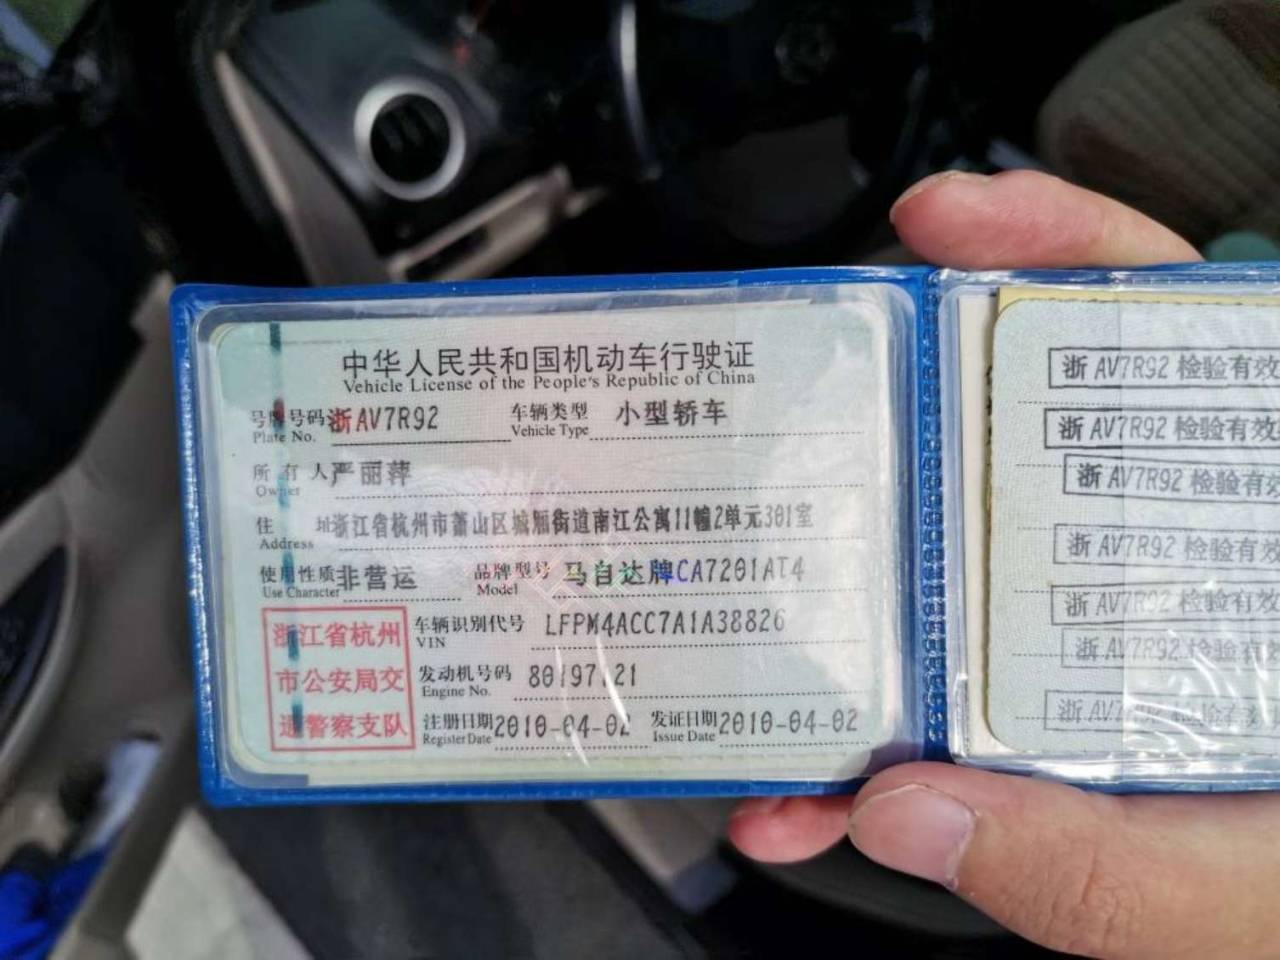 中华人民共和国机动车行驶证
Vehicle License of the People's Republic of China
号牌号码 浙AV7R92 车辆类型 小型轿车
Plate No. Vehicle Type
所有人 严丽萍
Owner
住址 浙江省杭州市萧山区城厢街道南江公寓11幢2单元301室
Address
使用性质 非营运 品牌型号 马自达牌CA7201AT4
Use Character Model
车辆识别代号 LFPM4ACC7A1A38826
VIN
发动机号码
Engine No.
注册日期 2010-04-02 发证日期 2010-04-02
Register Date Issue Date
浙江省杭州
市公安局交
通警察支队
浙AV7R92 检验有效
浙AV7R92 检验有效
浙AV7R92 检验有效
浙AV7R92 检验有效
浙AV7R92 检验有效
浙AV7R92 检验有效